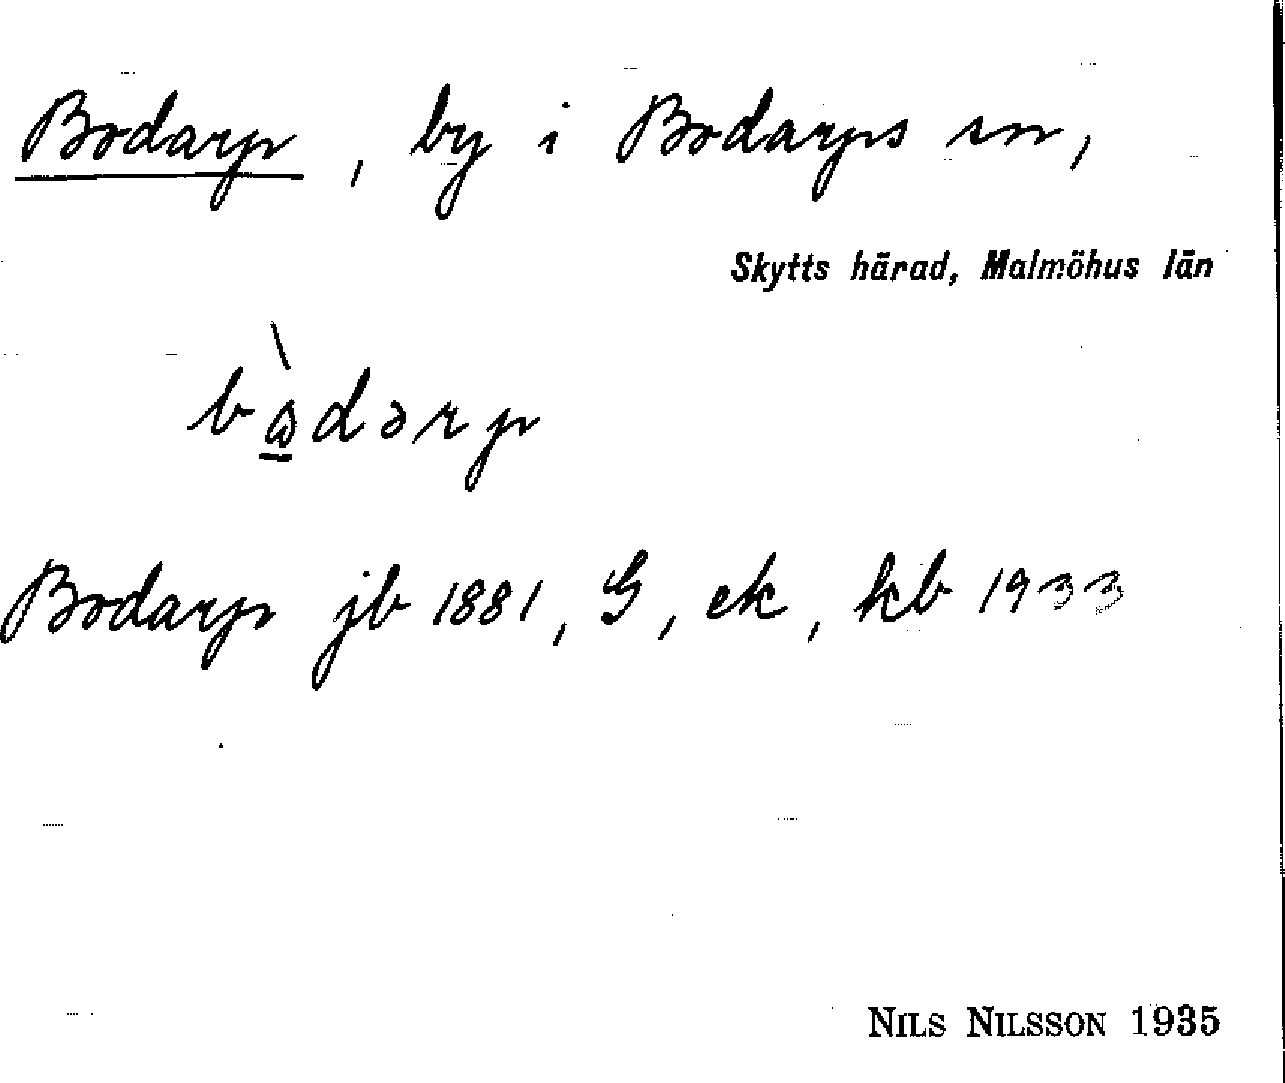 Bodarp, by i Bodarps sn,
Skytts härad, Malmöhus län
bàdərp
Bodarp jb 1881, G, ek, kb 1933
NILS NILSSON 1935